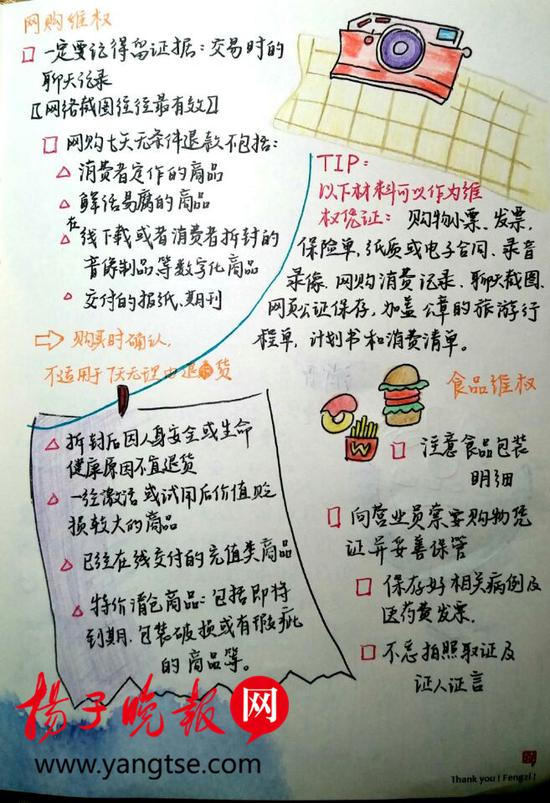 网购维权
一定要记得留证据：交易时的
聊天记录
【网络截图往往最有效】
网购七天无条件退款不包括：
消费者定作的商品
鲜活易腐的商品
在线下载或者消费者拆封的
音像制品等数字化商品
交付的报纸、期刊
购买时确认，
不适用于7天无理由退货
拆封后因人身安全或生命
健康原因不宜退货
一经激活或试用后价值贬
损较大的商品
已经在线交付的充值类商品
特价清仓商品：包括即将
到期、包装破损或有瑕疵
的商品等。
TIP：
以下材料可以作为维
权凭证：购物小票、发票，
保险单，纸质或电子合同、录音
录像、网购消费记录、聊天截图、
网页公证保存，加盖公章的旅游行
程单，计划书和消费清单。
食品维权
注意食品包装
明细
向营业员索要购物凭
证并妥善保管
保存好相关病例及
医药费发票.
不忘拍照取证及
证人证言
W
扬子晚报网
www.yangtse.com
Thank you ! Fengzi !